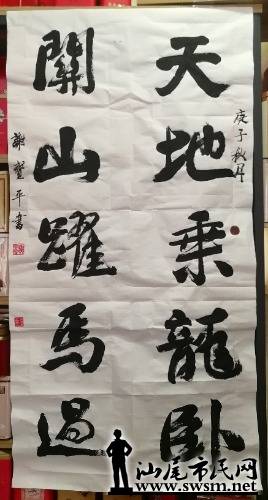 天地乗龍卧
庚子秋月
關山躍馬過
謝聖平書
汕尾市民网
www.swsm.net